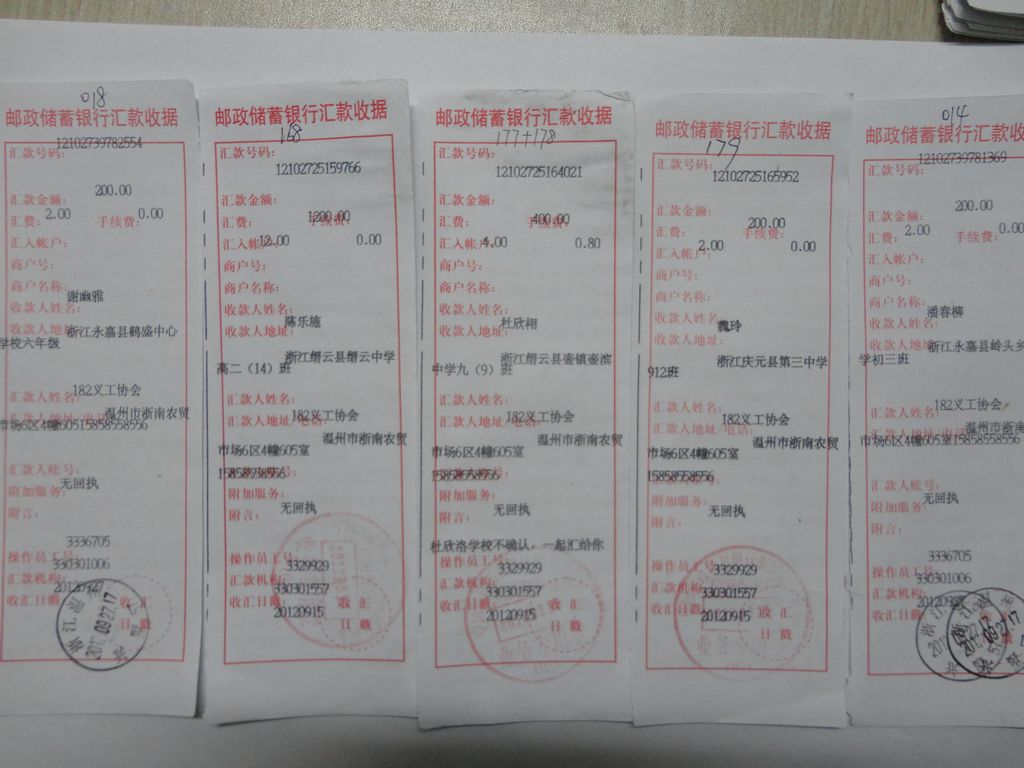 018
邮政储蓄银行汇款收据
12102739782554
汇款号码:
200.00
汇款金额:
汇费: 2.00 手续费: 0.00
汇入帐户:
商户号:
商户名称:
谢幽雅
收款人姓名:
收款人地址: 浙江永嘉县鹤盛中心
学校六年级
182义工协会
汇款人姓名:
汇款人地址/电话: 温州市浙南农贸
市场6区4幢60515858558556
汇款人账号:
无回执
附加服务:
附言:
3336705
操作员工号:
330301006
汇款机构:
收汇日戳:
收汇
日戳
浙江
09.27.17
168
邮政储蓄银行汇款收据
汇款号码:
12102725159766
汇款金额:
1200.00
汇费: 手续费:
12.00 0.00
汇入帐户:
商户号:
商户名称:
收款人姓名:
陈乐施
收款人地址:
浙江缙云县缙云中学
高二（14）班
汇款人姓名:
182义工协会
汇款人地址/电话:
温州市浙南农贸
市场6区4幢605室
附加服务:
无回执
附言:
操作员工号:
3329929
汇款机构:
330301557
收汇日戳:
20120915
收汇
日戳
177+178
邮政储蓄银行汇款收据
汇款号码:
12102725164021
汇款金额:
400.00
汇费: 手续费:
4.00 0.80
汇入帐户:
商户号:
商户名称:
收款人姓名:
杜欣栩
收款人地址:
浙江缙云县壶镇壶滨
中学九（9）班
汇款人姓名:
182义工协会
汇款人地址/电话:
温州市浙南农贸
市场6区4幢605室
15858558556
附加服务:
无回执
附言:
杜欣洛学校不确认，一起汇给你
操作员工号:
3329929
汇款机构:
330301557
收汇日戳:
20120915
收汇
日戳
邮政储蓄银行汇款收据
179
汇款号码:
12102725165952
汇款金额:
200.00
汇费: 手续费:
2.00 0.00
汇入帐户:
商户号:
商户名称:
收款人姓名:
魏玲
收款人地址:
浙江庆元县第三中学
912班
汇款人姓名:
182义工协会
汇款人地址/电话:
温州市浙南农贸
市场6区4幢605室
15858558556
附加服务:
无回执
附言:
操作员工号:
3329929
汇款机构:
330301557
收汇日戳:
20120915
收汇
日戳
014
邮政储蓄银行汇款收
12102739781369
汇款号码:
200.00
汇款金额:
汇费: 2.00 手续费: 0.00
汇入帐户:
商户号:
商户名称:
潘春柳
收款人姓名:
收款人地址: 浙江永嘉县岭头乡
学初三班
182义工协会
汇款人姓名:
汇款人地址/电话: 温州市浙南
市场6区4幢605室15858558556
汇款人账号:
无回执
附加服务:
附言:
3336705
操作员工号:
330301006
汇款机构:
收汇日戳: